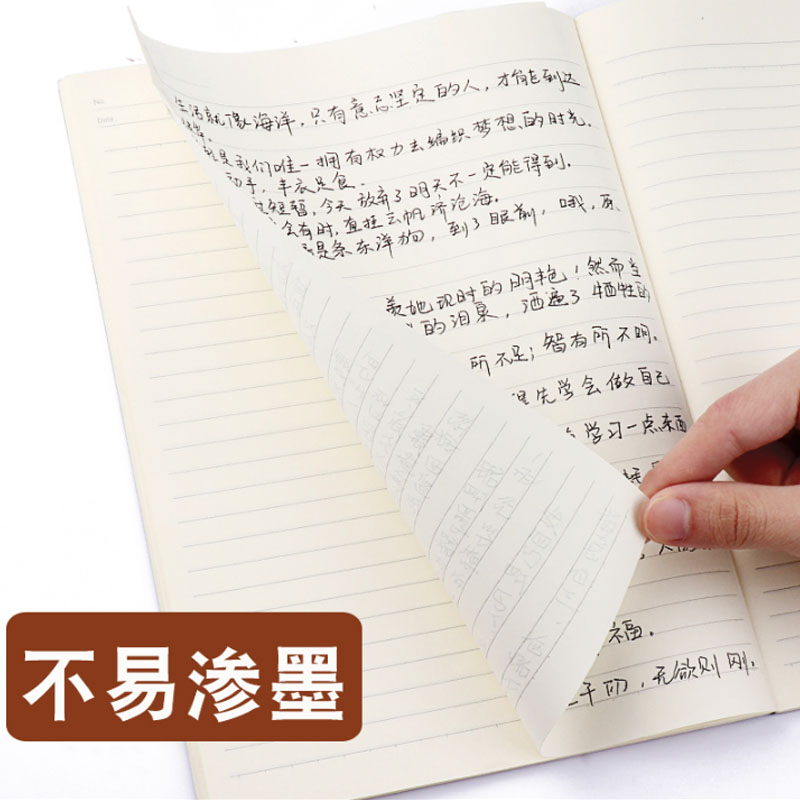 No.
Date
生活就像海洋，只有意志坚定的人，才能到达
是我们唯一拥有权力去编织梦想的时光。
动手，丰衣足食。
短暂，今天放弃了明天不一定能得到。
会有时，直挂云帆济沧海。
是条东洋狗，到了眼前，哦，原
羡她现时的明艳！然而当
的泪泉，洒遍了牺牲的
所不足；智有所不明。
先学会做自己
学习一点东西
福。
千仞，无欲则刚。
不易渗墨